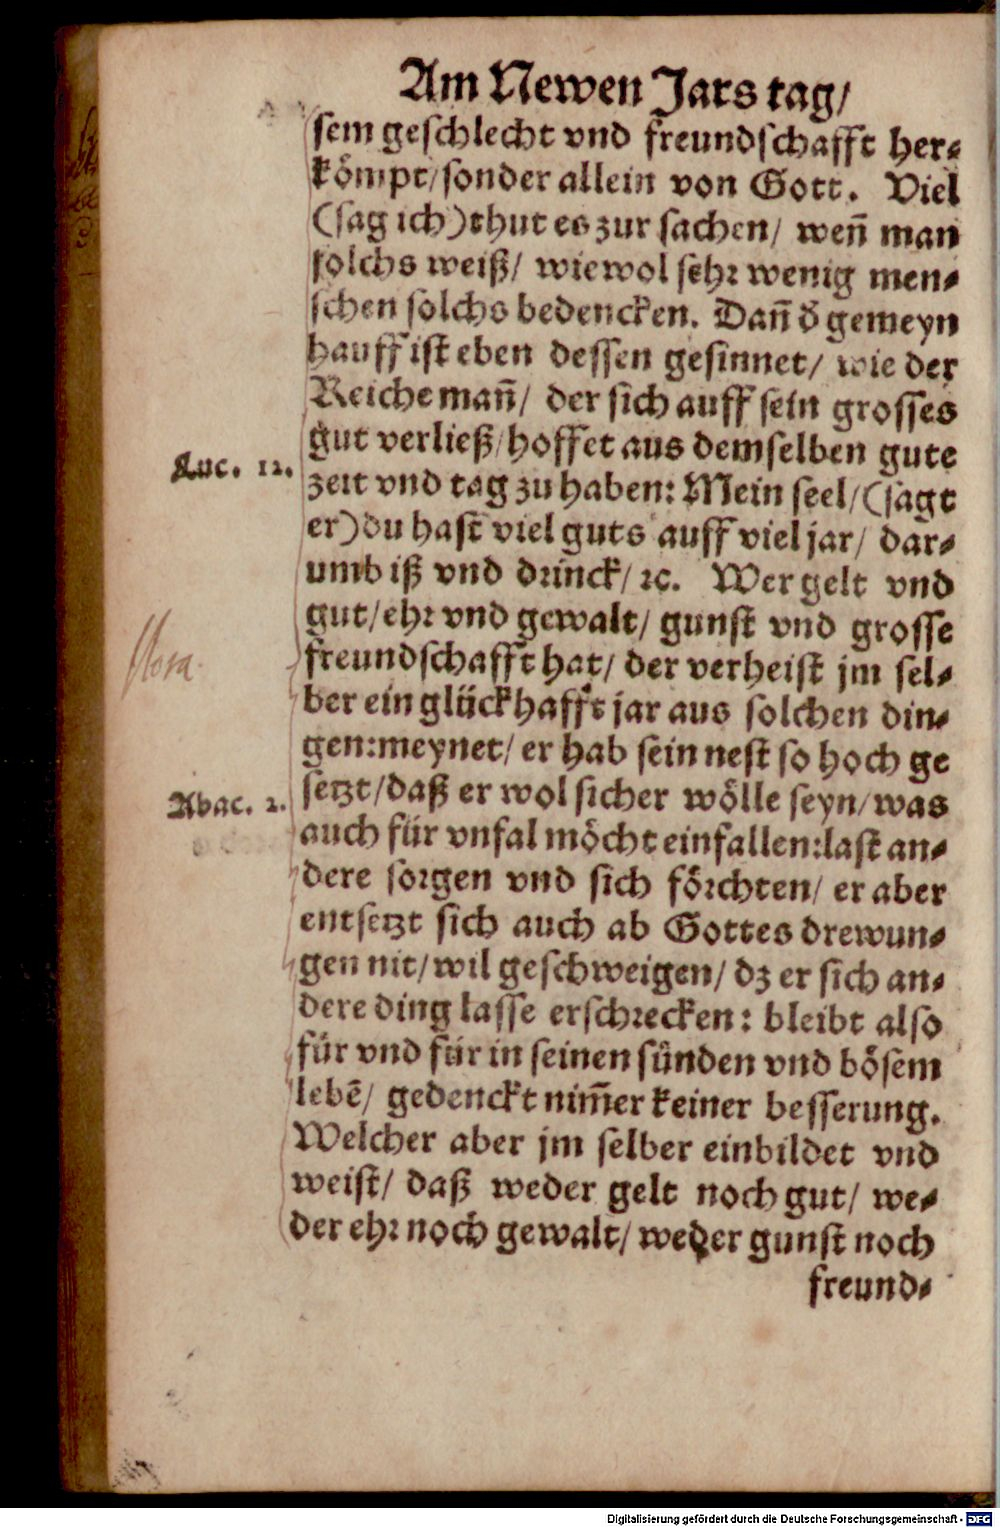 Am Newen Jars tag/
sem geschlecht vnd freundschafft her⸗
kömpt/sonder allein von Gott. Viel
(sag ich)thut es zur sachen/ weñ man
solchs weiß/ wiewol sehr wenig men⸗
schen solchs bedencken. Dañ d̃ gemeyn
hauff ist eben dessen gesinnet/ wie der
Reiche mañ/ der sich auff sein grosses
gut verließ/hoffet aus demselben gute
Luc. 12.
zeit vnd tag zu haben: Mein seel/(sagt
er)du hast viel guts auff viel jar/ dar⸗
umb iß vnd drinck/ ꝛc. Wer gelt vnd
gut/ehr vnd gewalt/ gunst vnd grosse
Nota.
freundschafft hat/ der verheist jm sel⸗
ber ein glückhafft jar aus solchen din⸗
gen:meynet/ er hab sein nest so hoch ge
Abac. 2.
setzt/daß er wol sicher wölle seyn/was
auch für vnfal möcht einfallen:last an⸗
dere sorgen vnd sich förchten/ er aber
entsetzt sich auch ab Gottes drewun⸗
gen nit/wil geschweigen/ dz er sich an⸗
dere ding lasse erschrecken: bleibt also
für vnd für in seinen sünden vnd bösem
lebẽ/ gedenckt nim̃er keiner besserung.
Welcher aber jm selber einbildet vnd
weist/ daß weder gelt noch gut/ we⸗
der ehr noch gewalt/ weder gunst noch
freund⸗
Digitalisierung gefördert durch die Deutsche Forschungsgemeinschaft - DFG